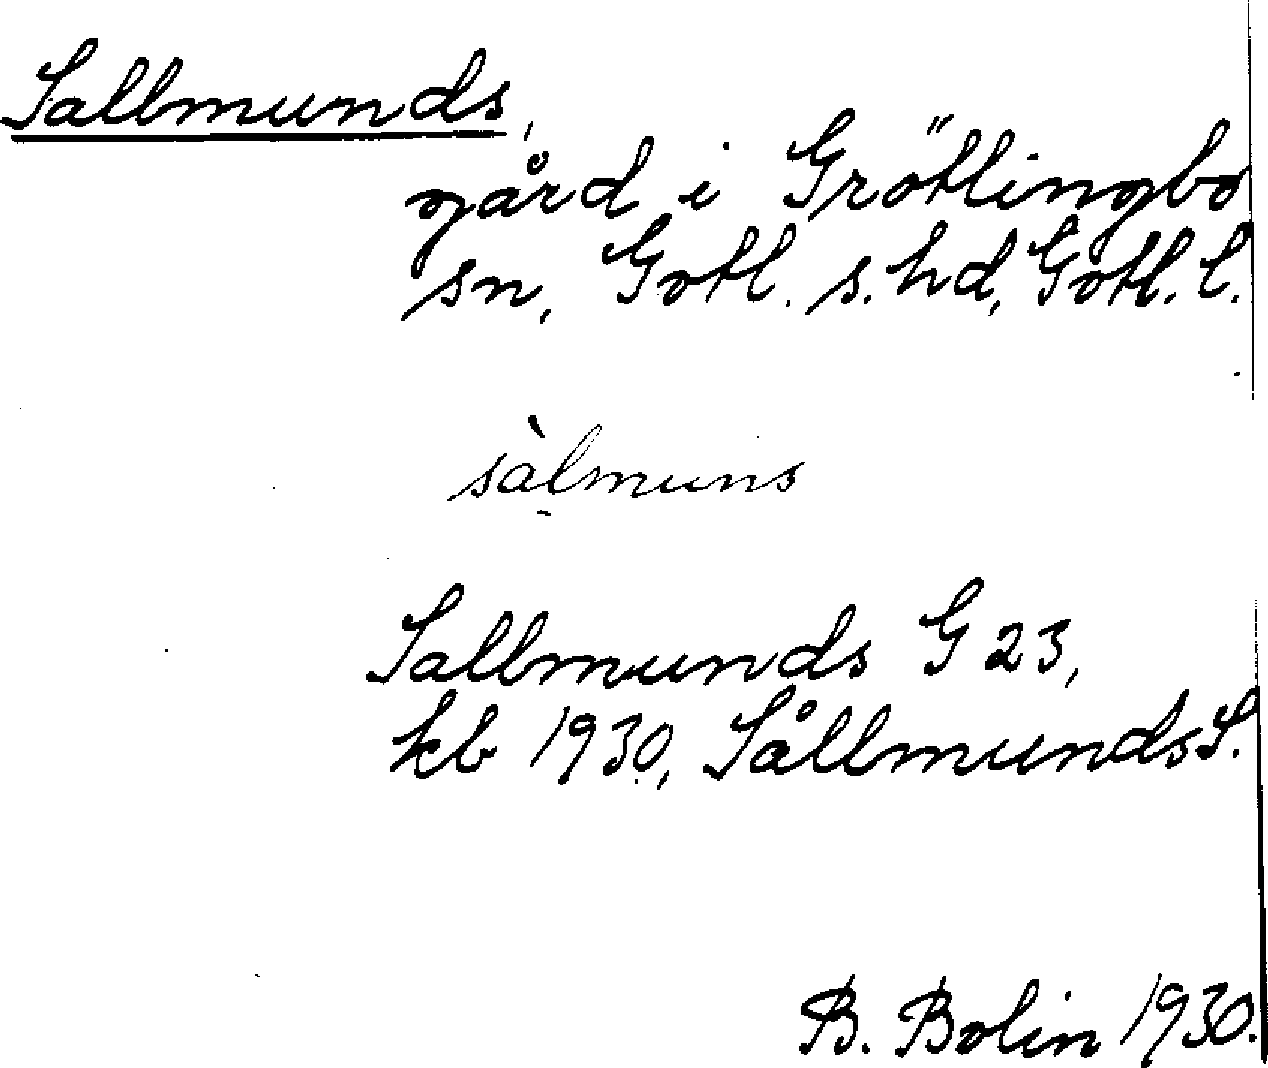 Sallmunds,
gård i Grötlingbo
sn, Gotl. s. hd, Gotl. l.
sàlmuns
Sallmunds G 23,
kb 1930, Sållmunds S.
B. Bolin 1930.